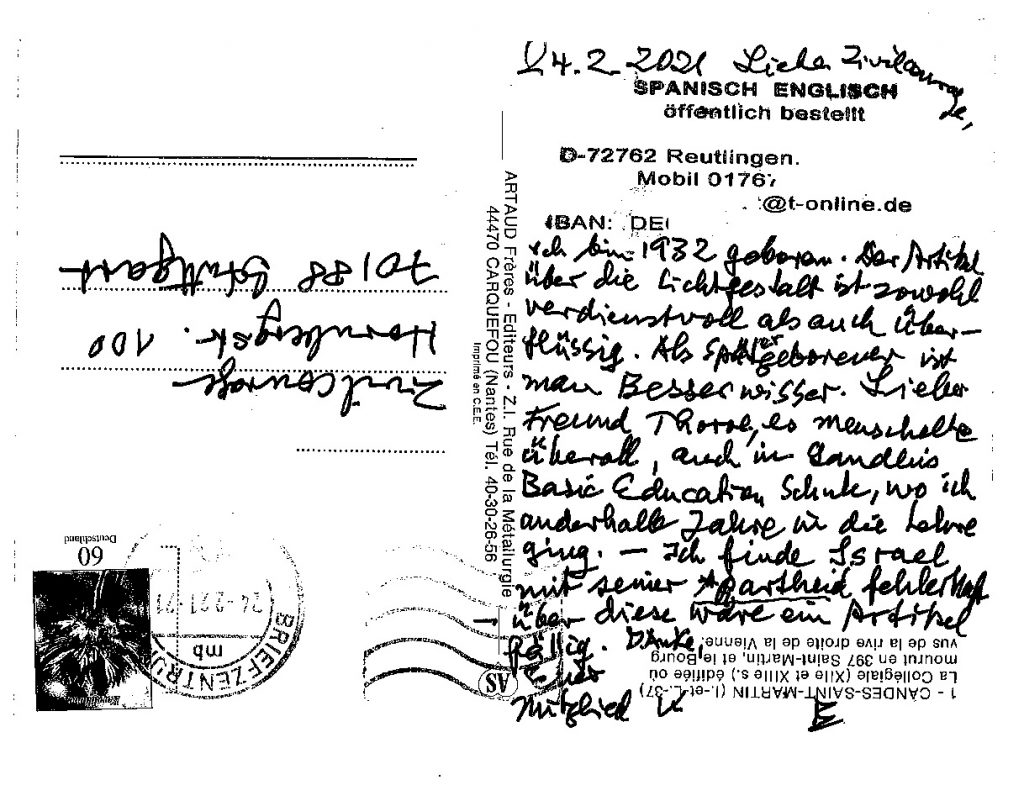 24.2.2021 Liebe Zivilcourage,
SPANISCH ENGLISCH
öffentlich bestellt
D-72762 Reutlingen.
Mobil 0176
@t-online.de
IBAN: DE
Ich bin 1932 geboren. Der Artikel
über die Lichtgestalt ist sowohl
verdienstvoll als auch über-
flüssig. Als Spätergeborener ist
man Besserwisser. Lieber
Freund Thoroe, es menschelte
überall, auch in Gandhis
Basic Education Schule, wo ich
anderthalb Jahre in die Lehre
ging. – Ich finde Israel
mit seiner Apartheid fehlerhaft
→ über diese wäre ein Artikel
fällig. Danke,
Euer
Mitglied K
ARTAUD Frères - Editeurs - Z.I. Rue de la Métallurgie
44470 CARQUEFOU (Nantes) Tél. 40-30-26-56
Imprimé en C.E.E.
AS
1 - CANDES-SAINT-MARTIN (I.-et-L.-37)
La Collégiale (XIIe et XIIIe s.), édifiée où
mourut en 397 Saint-Martin, et le Bourg
vus de la rive droite de la Vienne.
Zivilcourage
Hornbergstr. 100
70188 Stuttgart
Deutschland
60
BRIEFZENTRUM
mb
24-2.21-21